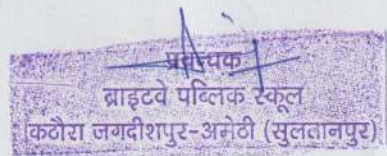 प्रबन्धक
ब्राइटवे पब्लिक स्कूल
कठौरा जगदीशपुर-अमेठी (सुलतानपुर)